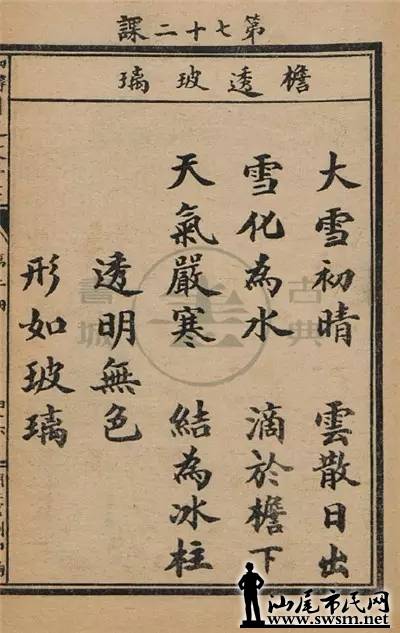 第七十二課
檐透玻璃
大雪初晴 雲散日出
雪化為水 滴於檐下
天氣嚴寒 結為冰柱
透明無色
形如玻璃
古典書城
汕尾市民网
www.swsm.net